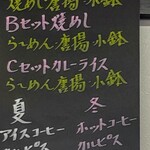 焼めし唐揚小鉢
Bセット焼めし
らーめん唐揚小鉢
Cセットカレーライス
らーめん唐揚小鉢
夏 冬
アイスコーヒー ホットコーヒー
カルピス カルピス